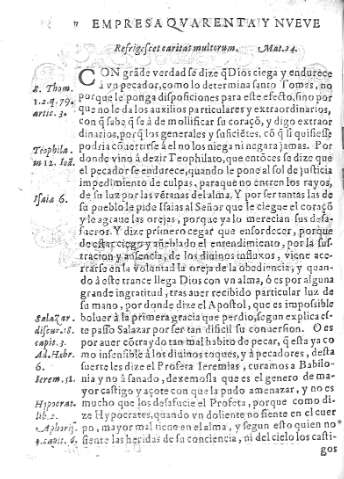 EMPRESA QVARENTA Y NVEVE
Refrigescet caritas multorum. Mat. 24.
CON grãde verdad se dize q̃ Dios ciega y endurece
S. Thom.
à vn pecador, como lo determina santo Tomas, no
1.2. q. 79.
porque le ponga disposiciones para este efecto, sino por
artic. 3.
que no le da los auxilios particulares y extraordinarios,
con q̃ sabe q̃ se à de mollificar su coraçõ, y digo extraor
dinarios, porq̃ los generales y suficiẽtes, cõ q̃ si quisiesse
Teophila.
podria cõuertirse à el no los niega ni negara jamas. Por
m 12. Ioã.
donde vino à dezir Theophilato, que entõces se dize que
el pecador se endurece, quando le pone al sol de justicia
impedimiento de culpas, paraque no entren los rayos,
de su luz por las vẽtanas del alma. Y por ser tantas las de
Isaia 6.
su pueblo le pide Isaias al Señor que le ciegue el coraçõ
y le agraue las orejas, porque ya lo merecian sus desa-
fueros. Y dize primero cegar que ensordecer, porque
de estar ciego y añeblado el entendimiento, por la sus-
tracion y ausencia, de los diuinos influxos, viene acer-
rarse en la voluntad la oreja de la obediencia; y quan-
do à este trance llega Dios con vn alma, ò es por alguna
grande ingratitud, tras auer recibido particular luz de
su mano, por donde dize el Apostol, que es impossible
Salazar.
boluer à la primera gracia que perdio, segun explica es-
discur. 8.
te passo Salazar por ser tan dificil su conuersion. O es
capit. 3.
por auer cõtraydo tan mal habito de pecar, q̃ esta ya co
Ad. Hebr.
mo insensible à los diuinos toques, y à pecadores, desta
6.
suerte les dize el Profeta Ieremias, curamos a Babilo-
Ierem. 51.
nia y no à sanado, dexemosla que es el genero de ma-
yor castigo y açote con que la pudo amenazar, y no es
Hypocrat.
mucho que los desafucie el Profeta, porque como di-
lib. 2.
ze Hypocrates, quando vn doliente no siente en el cuer
Aphoriq.
po, mayor mal tiene en el alma, y segun esto quien no
capit. 6.
siente las heridas de su conciencia, ni del cielo los casti-
gos